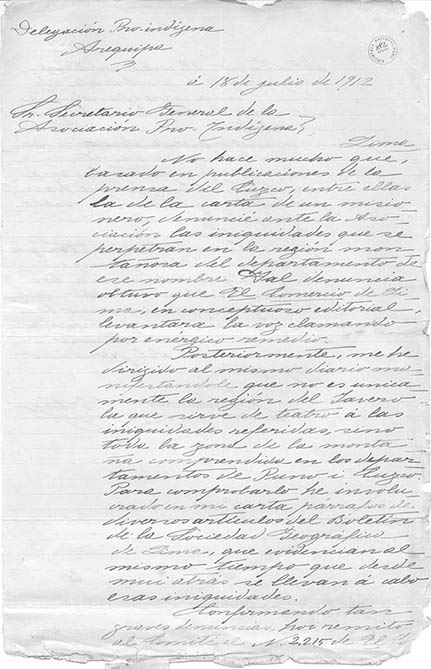 Delegación Pro-indígena
Arequipa
á 18 de julio de 1912
Sr. Secretario General de la
Asociación Pro Indígena
Lima
No hace mucho que,
basado en publicaciones de la
prensa del Cuzco, entre ellas
la de la carta de un misio
nero, denuncié ante la Aso-
ciación las iniquidades que se
perpetran en la región mon-
tañosa del departamento de
ese nombre. Tal denuncia
obtuvo que El Comercio de Li-
ma, en conceptuoso editorial,
levantara la voz clamando
por enérgico remedio.
Posteriormente, me he
dirigido al mismo diario ma-
nifestándole que no es unica-
mente la región del
la que sirve de teatro á las
iniquidades referidas, sino
toda la zona de la monta
ña comprendida en los depar-
tamentos de Puno i Cuzco.
Para comprobarlo he involu-
crado en mi carta párrafos de
diversos artículos del Boletín
de la Sociedad Geográfica
de Lima, que evidencian al
mismo tiempo que desde
mui atrás se llevan á cabo
esas iniquidades.
Confirmando tan
graves denuncias, por remito
al Comité el N. 2,215 de